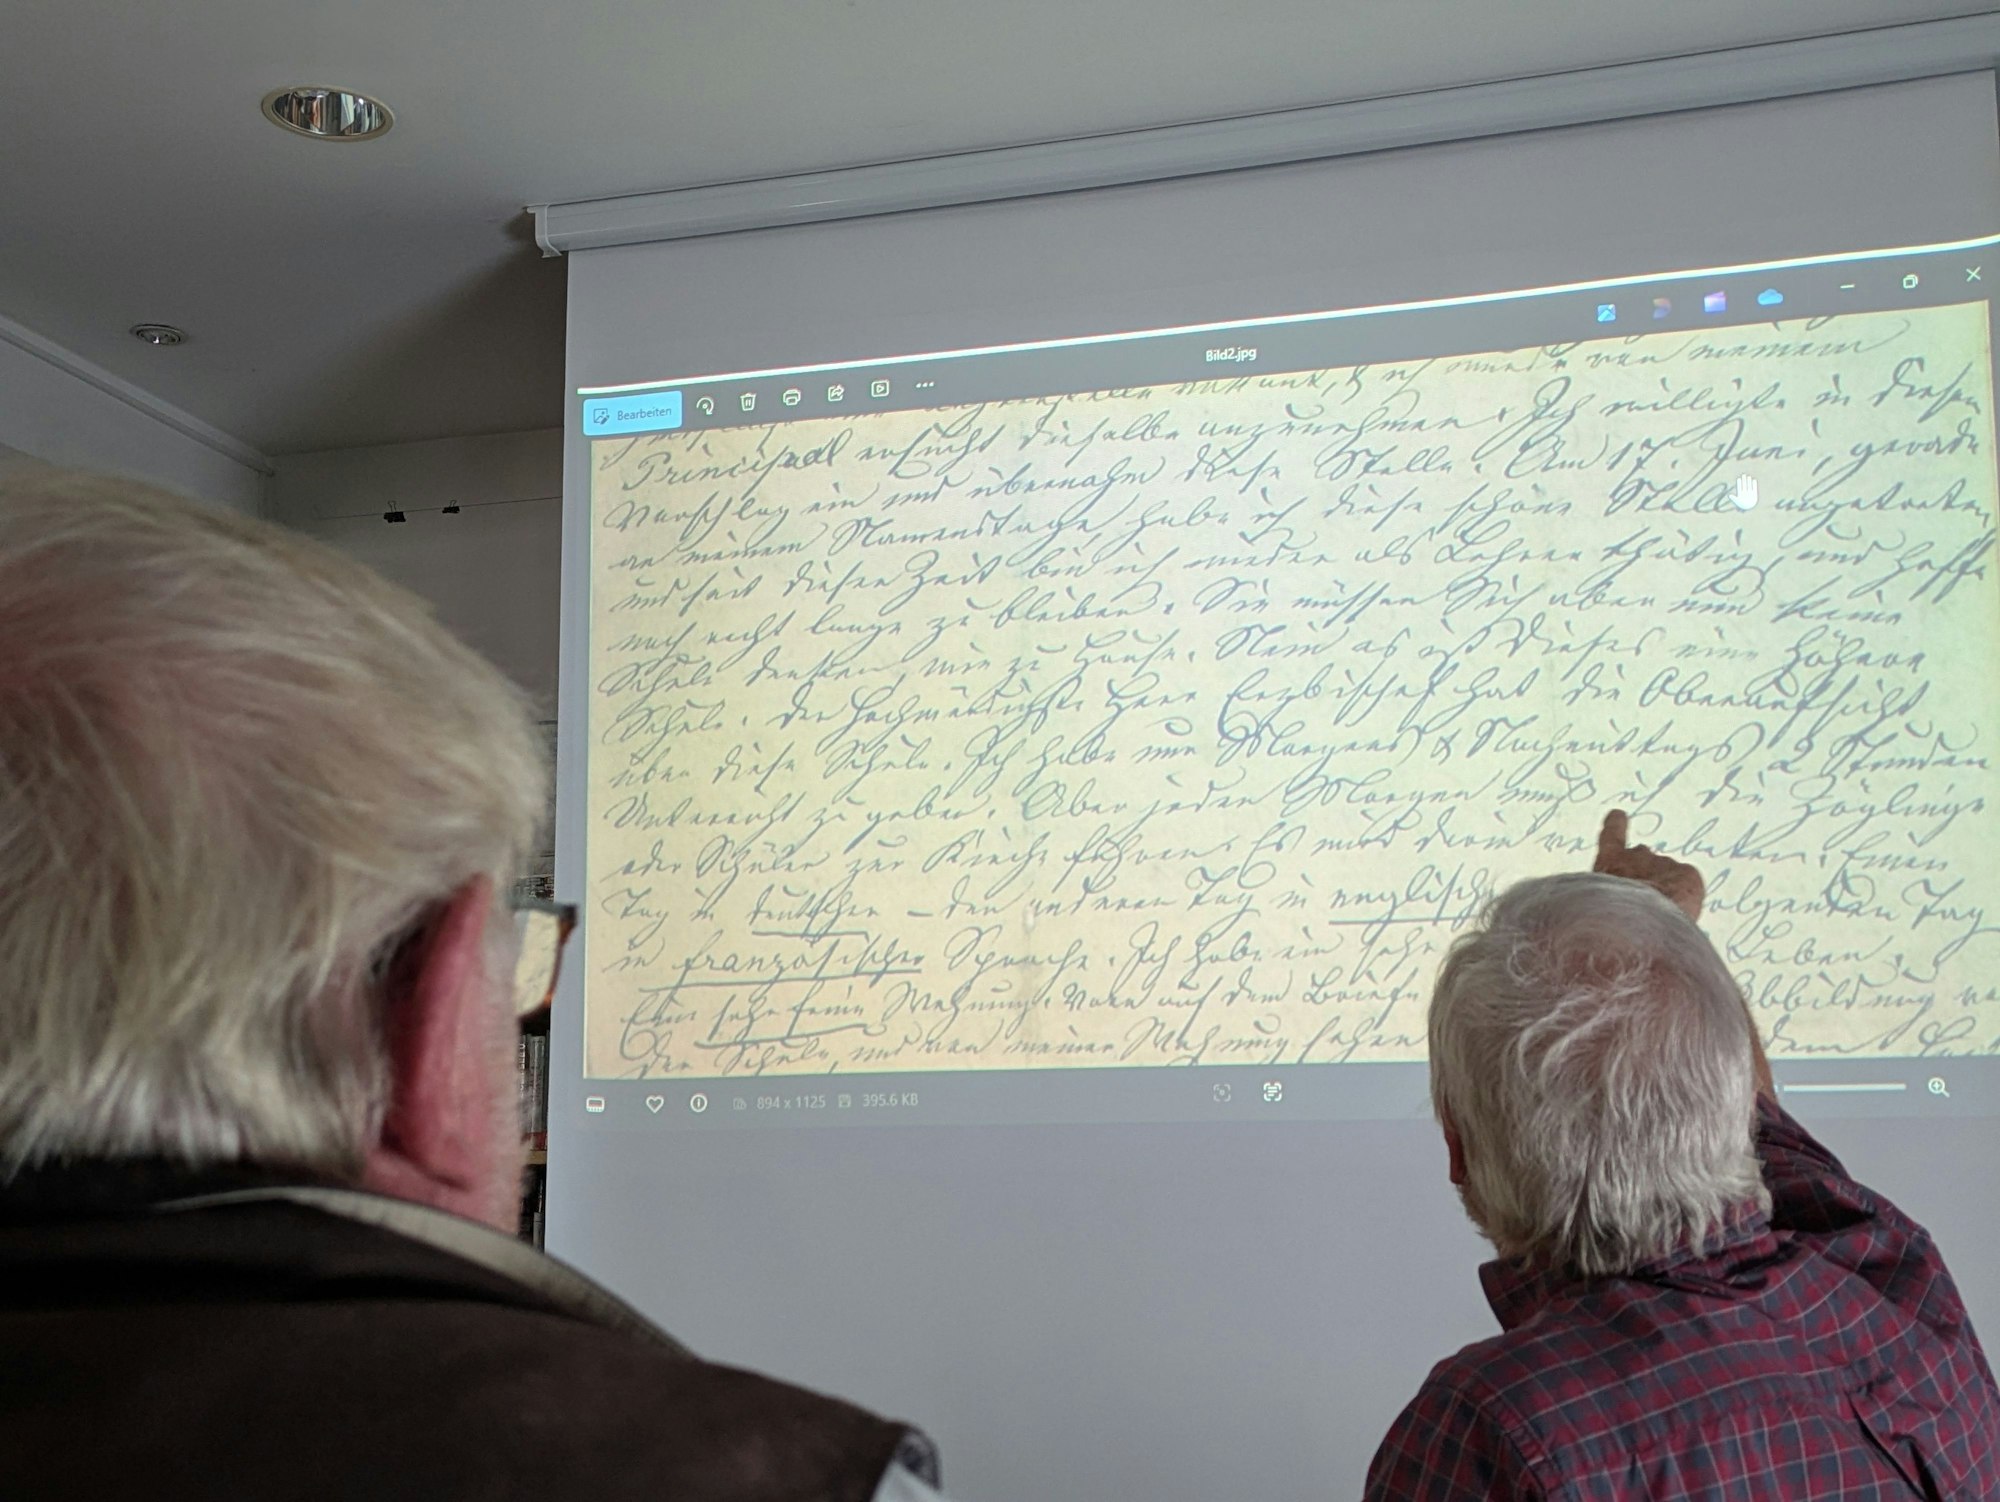 Bild2.jpg
Bearbeiten
ich wurde von meinem
Principal ersucht dieselbe anzunehmen. Ich willigte in diesen
Vorschlag ein und übernahm diese Stelle. Am 17. Juni, gerade
an meinem Namenstage, habe ich diese schöne Stelle angetreten,
und seit dieser Zeit bin ich wieder als Lehrer thätig, und hoffe
noch recht lange zu bleiben. Sie müssen Sich aber nun keine
Schule denken, wie zu Hause. Nein es ist dieses eine Höhere
Schule. Der Hochwürdigste Herr Erzbischof hat die Oberaufsicht
über diese Schule. Ich habe nun Morgens & Nachmittags 2 Stunden
Unterricht zu geben. Aber jeden Morgen muß ich die Zöglinge
oder Schüler zur Kirche führen. Es wird darin Einen
Tag in deutscher – den anderen Tag in englischer folgenden Tag
in französischer Sprache. Ich habe ein sehr Leben.
Eine sehr feine Wohnung. Vorn auf dem Briefe Abbildung
der Schule, und von meiner Wohnung sehen dem
894 x 1125 395.6 KB